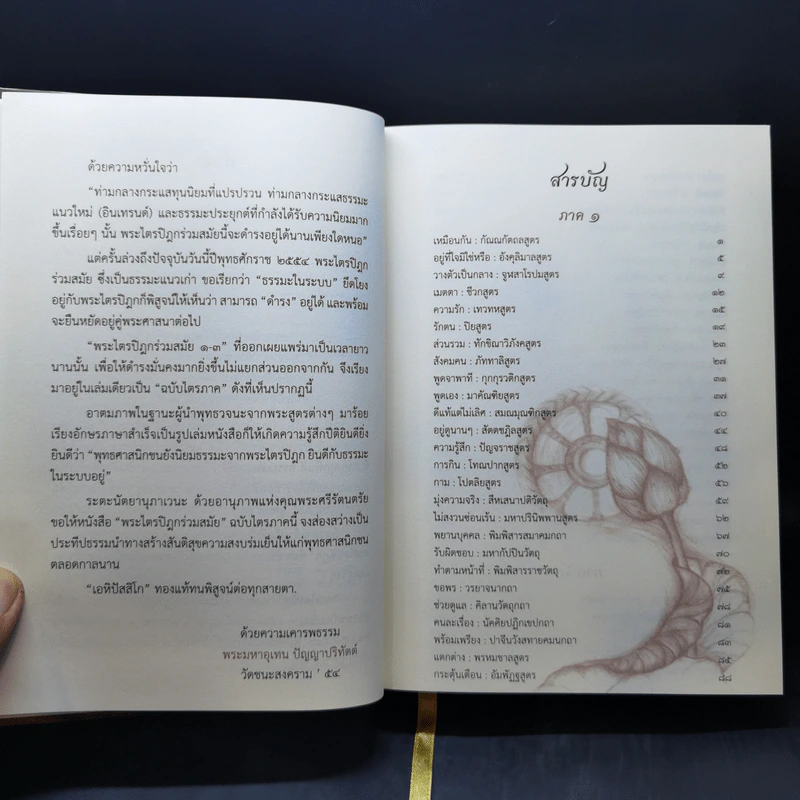 ด้วยความหวั่นใจว่า
“ท่ามกลางกระแสทุนนิยมที่แปรปรวน ท่ามกลางกระแสธรรมะ
แนวใหม่ (อินเทรนด์) และธรรมะประยุกต์ที่กำลังได้รับความนิยมมาก
ขึ้นเรื่อยๆ นั้น พระไตรปิฎกร่วมสมัยนี้จะดำรงอยู่ได้นานเพียงใดหนอ”
แต่ครั้นล่วงถึงปัจจุบันวันนี้ปีพุทธศักราช ๒๕๕๔ พระไตรปิฎก
ร่วมสมัย ซึ่งเป็นธรรมะแนวเก่า ขอเรียกว่า “ธรรมะในระบบ” ยึดโยง
อยู่กับพระไตรปิฎกก็พิสูจน์ให้เห็นว่า สามารถ “ดำรง” อยู่ได้ และพร้อม
จะยืนหยัดอยู่คู่พระศาสนาต่อไป
“พระไตรปิฎกร่วมสมัย ๑-๓” ที่ออกเผยแพร่มาเป็นเวลายาว
นานนั้น เพื่อให้ดำรงมั่นคงมากยิ่งขึ้นไม่แยกส่วนออกจากกัน จึงเรียง
มาอยู่ในเล่มเดียวเป็น “ฉบับไตรภาค” ดังที่เห็นปรากฏนี้
อาตมภาพในฐานะผู้นำพุทธวจนะจากพระสูตรต่างๆ มาร้อย
เรียงอักษรภาษาสำเร็จเป็นรูปเล่มหนังสือก็ให้เกิดความรู้สึกปีติยินดียิ่ง
ยินดีว่า “พุทธศาสนิกชนยังนิยมธรรมะจากพระไตรปิฎก ยินดีกับธรรมะ
ในระบบอยู่”
ระตะนัตยานุภาเวนะ ด้วยอานุภาพแห่งคุณพระศรีรัตนตรัย
ขอให้หนังสือ “พระไตรปิฎกร่วมสมัย” ฉบับไตรภาคนี้ จงส่องสว่างเป็น
ประทีปธรรมนำทางสร้างสันติสุขความสงบร่มเย็นให้แก่พุทธศาสนิกชน
ตลอดกาลนาน
“เอหิปัสสิโก” ทองแท้ทนพิสูจน์ต่อทุกสายตา.
ด้วยความเคารพธรรม
พระมหาอุเทน ปัญญาปริทัตต์
วัดชนะสงคราม ’ ๕๔
สารบัญ
ภาค ๑
เหมือนกัน : กัณณกัตถลสูตร ๑
อยู่ที่ใจมิใช่หรือ : อังคุลิมาลสูตร ๕
วางตัวเป็นกลาง : จูฬสาโรปมสูตร ๙
เมตตา : ชีวกสูตร ๑๒
ความรัก : เทวทหสูตร ๑๕
รักตน : ปิยสูตร ๑๙
ส่วนรวม : ทักขิณาวิภังคสูตร ๒๓
สังคมคน : ภัททาลิสูตร ๒๗
พูดจาพาที : กุกกุรวติกสูตร ๓๑
พูดเอง : มาคัณฑิยสูตร ๓๗
ดีแท้แต่ไม่เลิศ : สมณมุณฑิกสูตร ๔๐
อยู่ดูนานๆ : สัตตชฎิลสูตร ๔๔
ความรู้สึก : ปัญจราชสูตร ๔๘
การกิน : โทณปากสูตร ๕๒
กาม : โปตลิยสูตร ๕๖
มุ่งความจริง : สีหเสนาปติวัตถุ ๕๙
ไม่สงวนซ่อนเร้น : มหาปรินิพพานสูตร ๖๒
พยานบุคคล : พิมพิสารสมาคมกถา ๖๗
รับผิดชอบ : มหากัปปินวัตถุ ๗๐
ทำตามหน้าที่ : พิมพิสารราชวัตถุ ๗๒
ขอพร : วรยาจนากถา ๗๕
ช่วยดูแล : คิลานวัตถุกถา ๗๘
คนละเรื่อง : นัคคิยปฏิกเขปกถา ๘๑
พร้อมเพรียง : ปาจีนวังสทายคมนกถา ๘๓
แตกต่าง : พรหมชาลสูตร ๘๕
กระตุ้นเตือน : อัมพัฏฐสูตร ๘๘